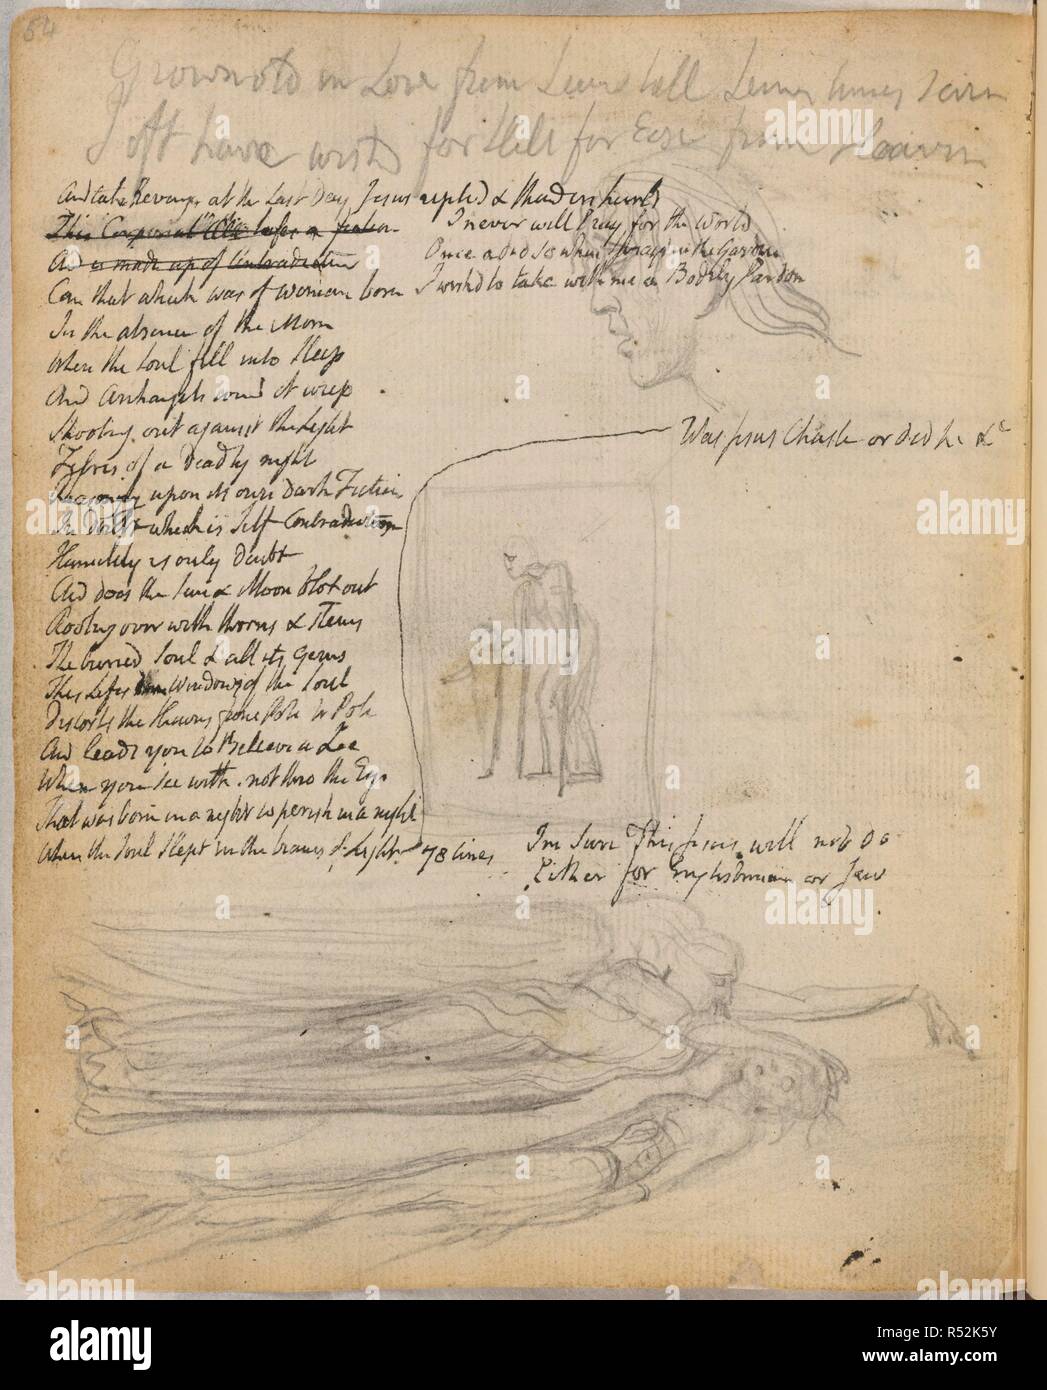 54
Grown old in Love from Seven till Seven times Seven
I oft have wishd for Hell for Ease from Heaven
And take Revenge at the Last Day Jesus replied & thunders hurld
This Corporeal life's a fiction I never will Pray for the World
And is made up of Contradiction Once I did so when I prayd in the Garden
Can that which was of Woman born I wishd to take with me a Bodily Pardon
In the absence of the Morn
When the Soul fell into Sleep
And Archangels round it weep
Shooting out against the Light
Fibres of a Deadly night
Reasoning upon its own Dark Fiction
In Doubt which is Self Contradiction
Humility is only Doubt
And does the Sun & Moon blot out
Rooting over with thorns & stems
The buried Soul & all its Gems
This Lifes Windows of the Soul
Distorts the Heavens from Pole to Pole
And leads you to Believe a Lie
When you see with not thro the Eye
That was born in a night to perish in a night
When the Soul Slept in the beams of Light 78 lines
Was Jesus Chaste or did he &c
Im Sure This Jesus will not Do
Either for Englishman or Jew
alamy
alamy stock photo
R52K5Y
www.alamy.com